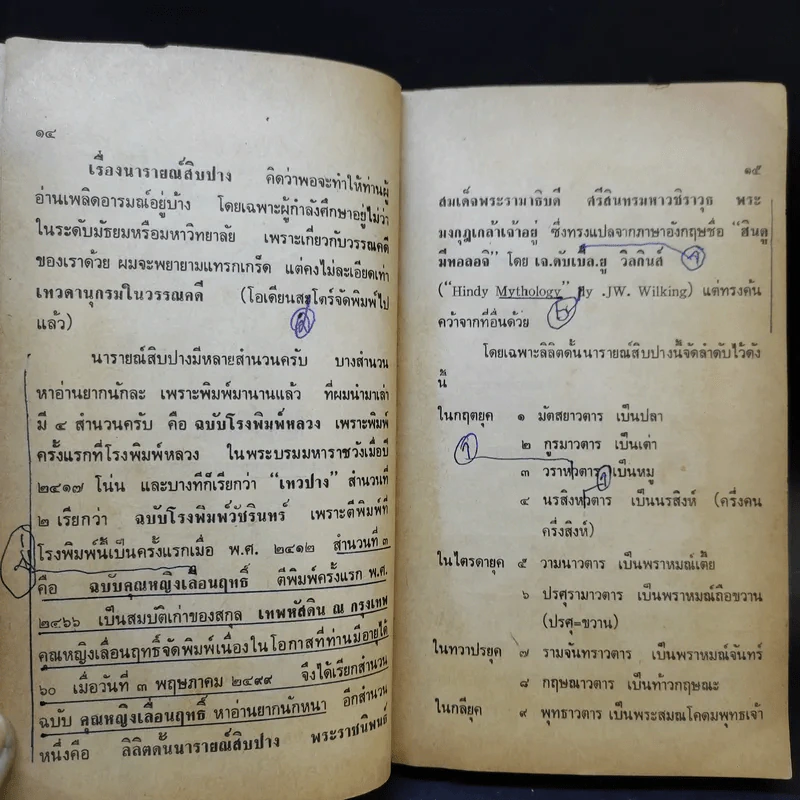 ๑๔
เรื่องนารายณ์สิบปาง คิดว่าพอจะทำให้ท่านผู้
อ่านเพลิดอารมณ์อยู่บ้าง โดยเฉพาะผู้กำลังศึกษาอยู่ไม่ว่า
ในระดับมัธยมหรือมหาวิทยาลัย เพราะเกี่ยวกับวรรณคดี
ของเราด้วย ผมจะพยายามแทรกเกร็ด แต่คงไม่ละเอียดเท่า
เทวดานุกรมในวรรณคดี (โอเดียนสโตร์จัดพิมพ์ไป
แล้ว)
นารายณ์สิบปางมีหลายสำนวนครับ บางสำนวน
หาอ่านยากนักละ เพราะพิมพ์มานานแล้ว ที่ผมนำมาเล่า
มี ๔ สำนวนครับ คือ ฉบับโรงพิมพ์หลวง เพราะพิมพ์
ครั้งแรกที่โรงพิมพ์หลวง ในพระบรมมหาราชวังเมื่อปี
๒๔๑๗ โน่น และบางทีก็เรียกว่า “เทวปาง” สำนวนที่
๒ เรียกว่า ฉบับโรงพิมพ์วัชรินทร์ เพราะตีพิมพ์ที่
โรงพิมพ์นี้เป็นครั้งแรกเมื่อ พ.ศ. ๒๔๑๒ สำนวนที่ ๓
คือ ฉบับคุณหญิงเลื่อนฤทธิ์ ตีพิมพ์ครั้งแรก พ.ศ.
๒๔๖๖ เป็นสมบัติเก่าของสกุล เทพหัสดิน ณ กรุงเทพ
คุณหญิงเลื่อนฤทธิ์จัดพิมพ์เนื่องในโอกาสที่ท่านมีอายุได้
๖๐ เมื่อวันที่ ๓ พฤษภาคม ๒๔๙๙ จึงได้เรียกสำนวน
ฉบับ คุณหญิงเลื่อนฤทธิ์ หาอ่านยากนักหนา อีกสำนวน
หนึ่งคือ ลิลิตดั้นนารายณ์สิบปาง พระราชนิพนธ์
๑๕
สมเด็จพระรามาธิบดี ศรีสินทรมหาวชิราวุธ พระ
มงกุฎเกล้าเจ้าอยู่ ซึ่งทรงแปลจากภาษาอังกฤษชื่อ “ฮินดู
มีทอลอจิ” โดย เจ.ดับเบิ้ล.ยู วิลกินส์
(“Hindy Mythology” By .JW. Wilking) แต่ทรงค้น
คว้าจากที่อื่นด้วย
โดยเฉพาะลิลิตดั้นนารายณ์สิบปางนี้จัดลำดับไว้ดัง
นี้
ในกฤตยุค ๑ มัตสยาวตาร เป็นปลา
๒ กูรมาวตาร เป็นเต่า
๓ วราหวตาร เป็นหมู
๔ นรสิงหวตาร เป็นนรสิงห์ (ครึ่งคน
ครึ่งสิงห์)
ในไตรดายุค ๕ วามนาวตาร เป็นพราหมณ์เตี้ย
๖ ปรศุรามาวตาร เป็นพราหมณ์ถือขวาน
(ปรศุ=ขวาน)
ในทวาปรยุค ๗ รามจันทราวตาร เป็นพราหมณ์จันทร์
๘ กฤษณาวตาร เป็นท้าวกฤษณะ
ในกลียุค ๙ พุทธาวตาร เป็นพระสมณโคดมพุทธเจ้า